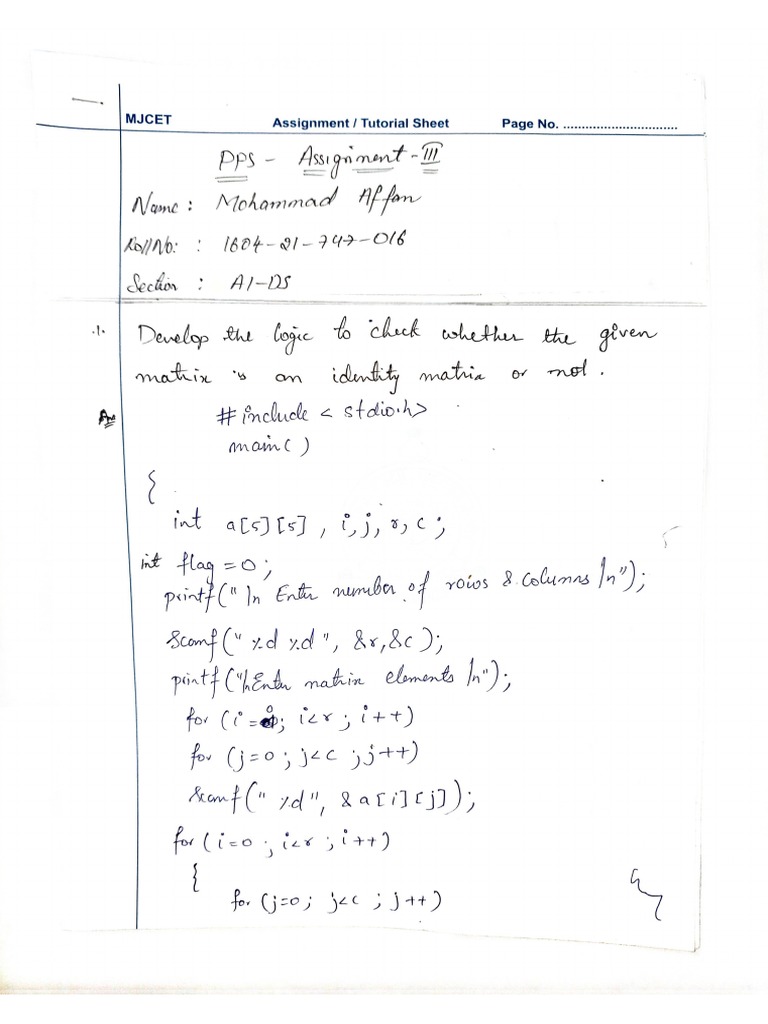 MJCET Assignment / Tutorial Sheet Page No. ................................
PPS - Assignment - III
Name : Mohammad Affan
Roll No: : 1604-21-747-016
Section : AI-DS
.1. Develop the logic to check whether the given
matrix is an identity matrix or not.
Ans
# include < stdio.h>
main( )
{
int a[5][5] , i, j, r, c ;
int flag = 0 ;
printf(" \n Enter number of rows & columns \n");
scanf(" %d %d ", &r, &c );
printf("\nEnter matrix elements \n");
for (i = 0; i<r ; i++)
for (j=0 ; j<c ; j++)
scanf(" %d", & a[i][j]);
for (i=0 ; i<r ; i++)
{
for (j=0; j<c ; j++)